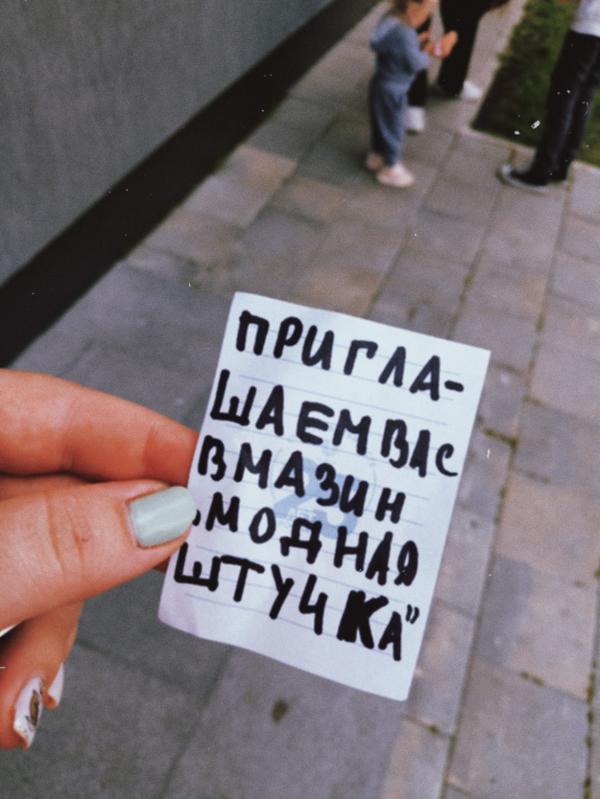 ПРИГЛА-
ШАЕМ ВАС
В МАЗИН
„МОДНАЯ
ШТУЧКА"